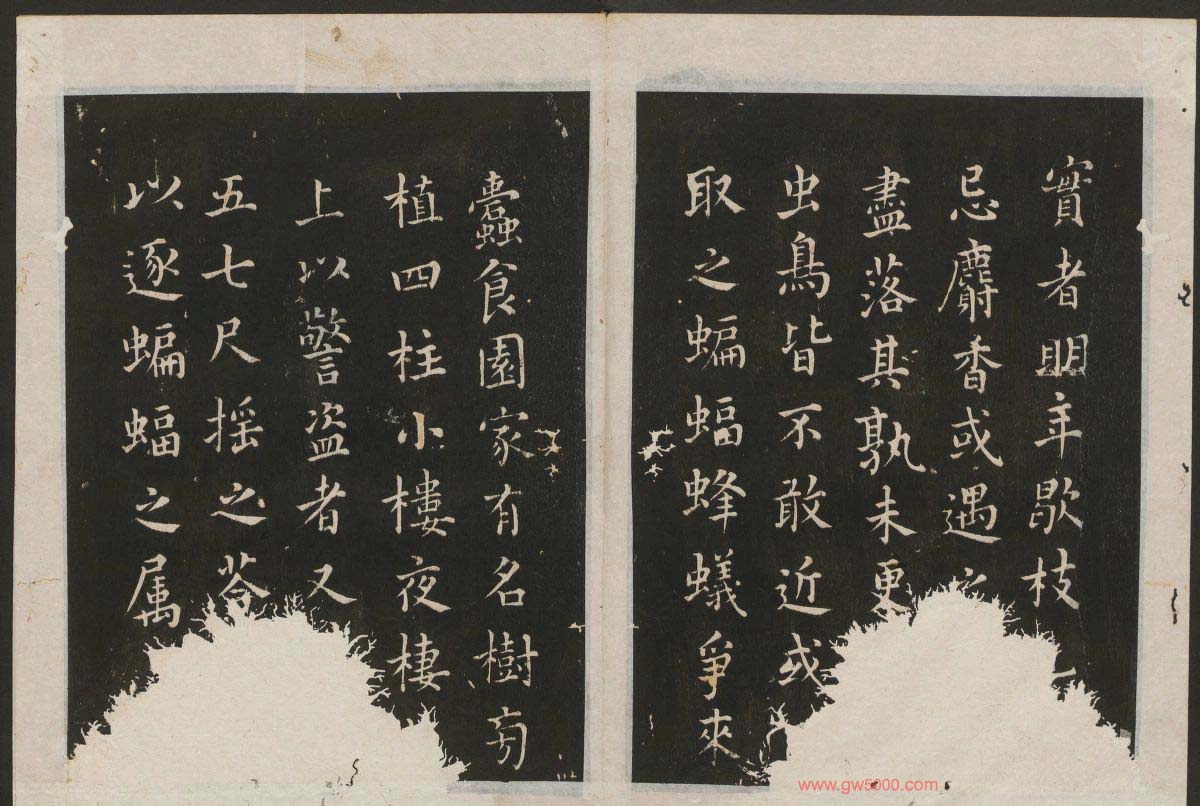 實者明年歇枝
忌麝香或遇
盡落其孰未更
虫鳥皆不敢近或
取之蝙蝠蜂蟻爭來
蠧食園家有名樹旁
植四柱小樓夜棲
上以警盜者又
五七尺摇之荅
以逐蝙蝠之属
www.gw5000.com